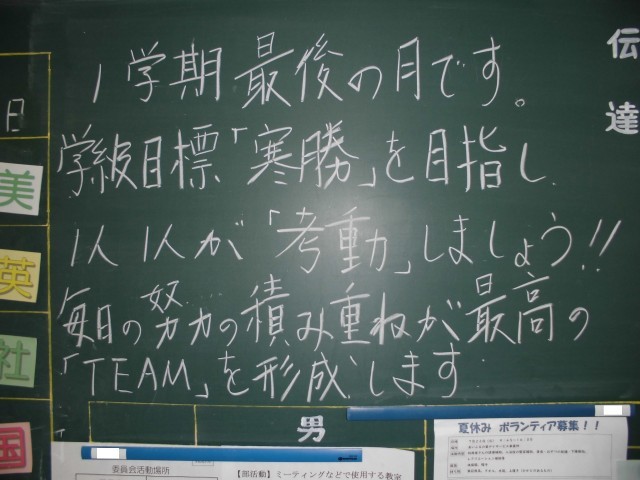 1学期最後の月です。
学級目標「寒勝」を目指し
1人1人が「考動」しましょう!!
毎日の努力の積み重ねが最高の
「TEAM」を形成します
伝達
日
美
英
社
国
男
委員会活動場所
【部活動】ミーティングなどで使用する教室
夏休み ボランティア募集！！